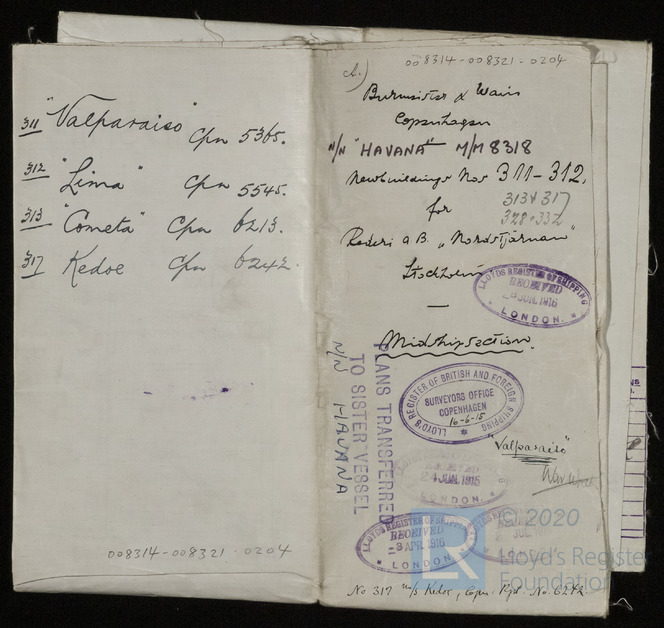 311 "Valparaiso" Cpn 5365.
312 "Lima" Cpn 5545.
313 "Cometa" Cpn 6213.
317 Kedoe Cpn 6242.
008314-008321-0204
008314-008321-0204
Burmeister & Wain
Copenhagen
N/N "HAVANA" M/M 8318
Newbuildings Nos 311-312,
313 & 317
328 & 332
for
Rederi a B. „Nordstjärnan"
Stockholm
LLOYD'S REGISTER OF SHIPPING
RECEIVED
JUN. 1916
LONDON.
Midshipsection.
LLOYD'S REGISTER OF BRITISH AND FOREIGN SHIPPING
SURVEYORS OFFICE
COPENHAGEN
16-6-15
"Valparaiso"
PLANS TRANSFERRED
TO SISTER VESSEL
N/N HAVANA
RECEIVED
24 JUN. 1915
LONDON.
LLOYDS REGISTER OF SHIPPING
RECEIVED
3 APR. 1916
LONDON.
LR © 2020
Lloyd's Register
Foundation
No 317 m/s Kedoe, Copn. Rpt. No. 6242